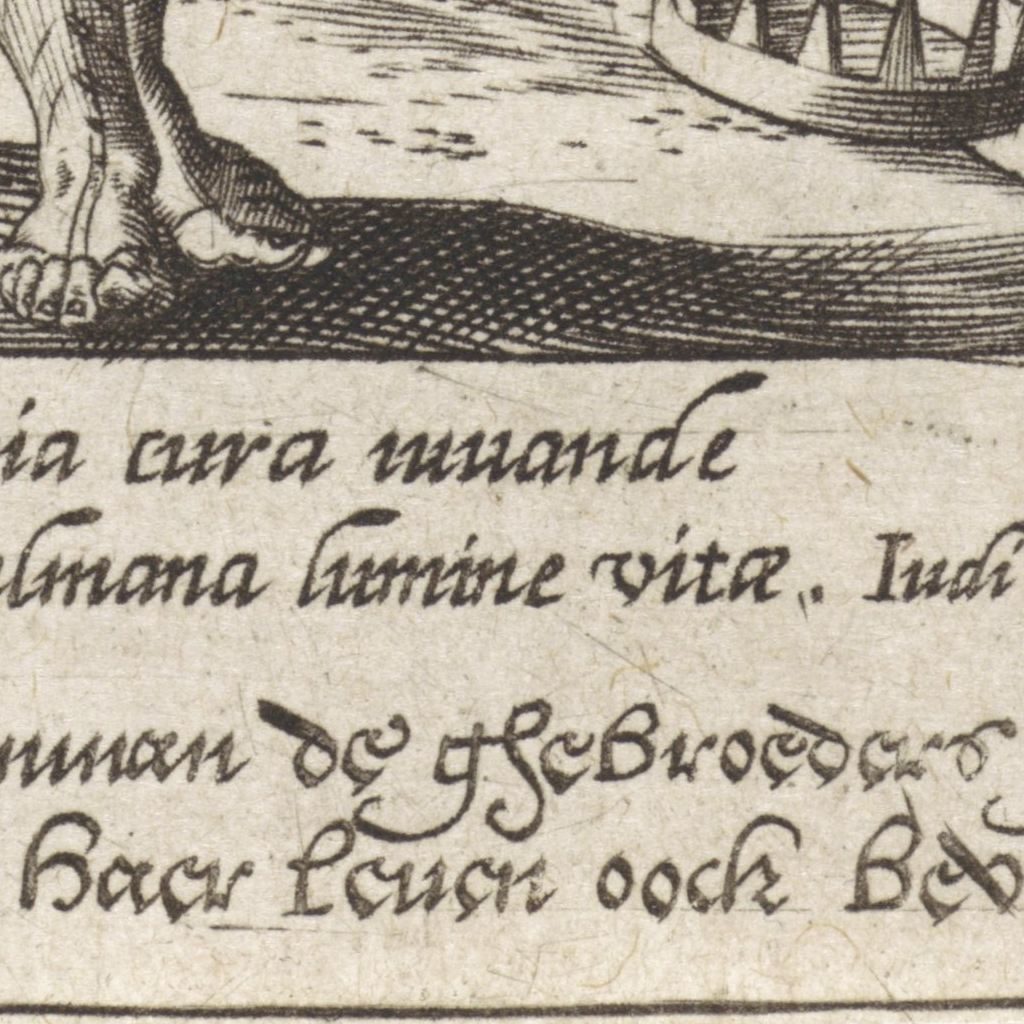 ia cura iuuande
almana lumine vitæ. Iudi
man de ghebroeders
haer leuen oock bev